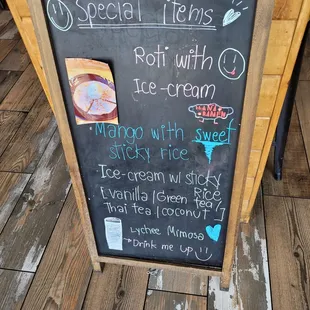 Special Items
Roti with
Ice-cream
Mango with sweet
sticky rice
Ice-cream w/ sticky
Rice
[vanilla | Green tea |
Thai tea | coconut]
Lychee Mimosa
Drink me up